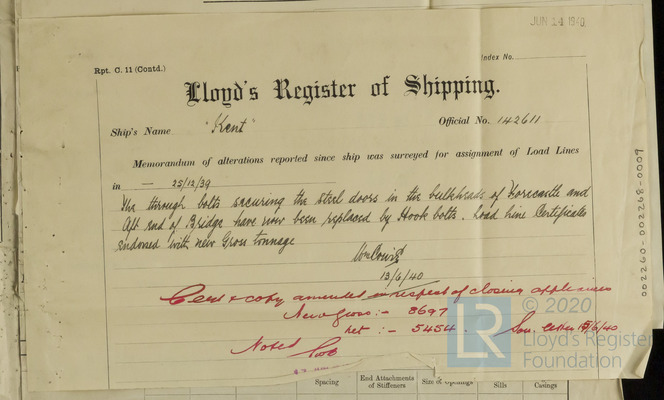 JUN 24 1940
Index No.
Rpt. C. 11 (Contd.)
Lloyd's Register of Shipping.
Ship's Name "Kent" Official No. 142611
Memorandum of alterations reported since ship was surveyed for assignment of Load Lines
in — 25/12/39
The through bolts securing the steel doors in the bulkheads of Forecastle and
Aft end of Bridge have now been replaced by Hook bolts. Load Line Certificates
endorsed with new Gross tonnage
13/6/40
Cert & copy amended in respect of closing appliances
New Gross :- 8697
Net :- 5454. letter /6/40
Noted
002260-002268-0009
LR
© 2020
Lloyd's Register
Foundation
Spacing
End Attachments
of Stiffeners
Size of Openings
Sills
Casings